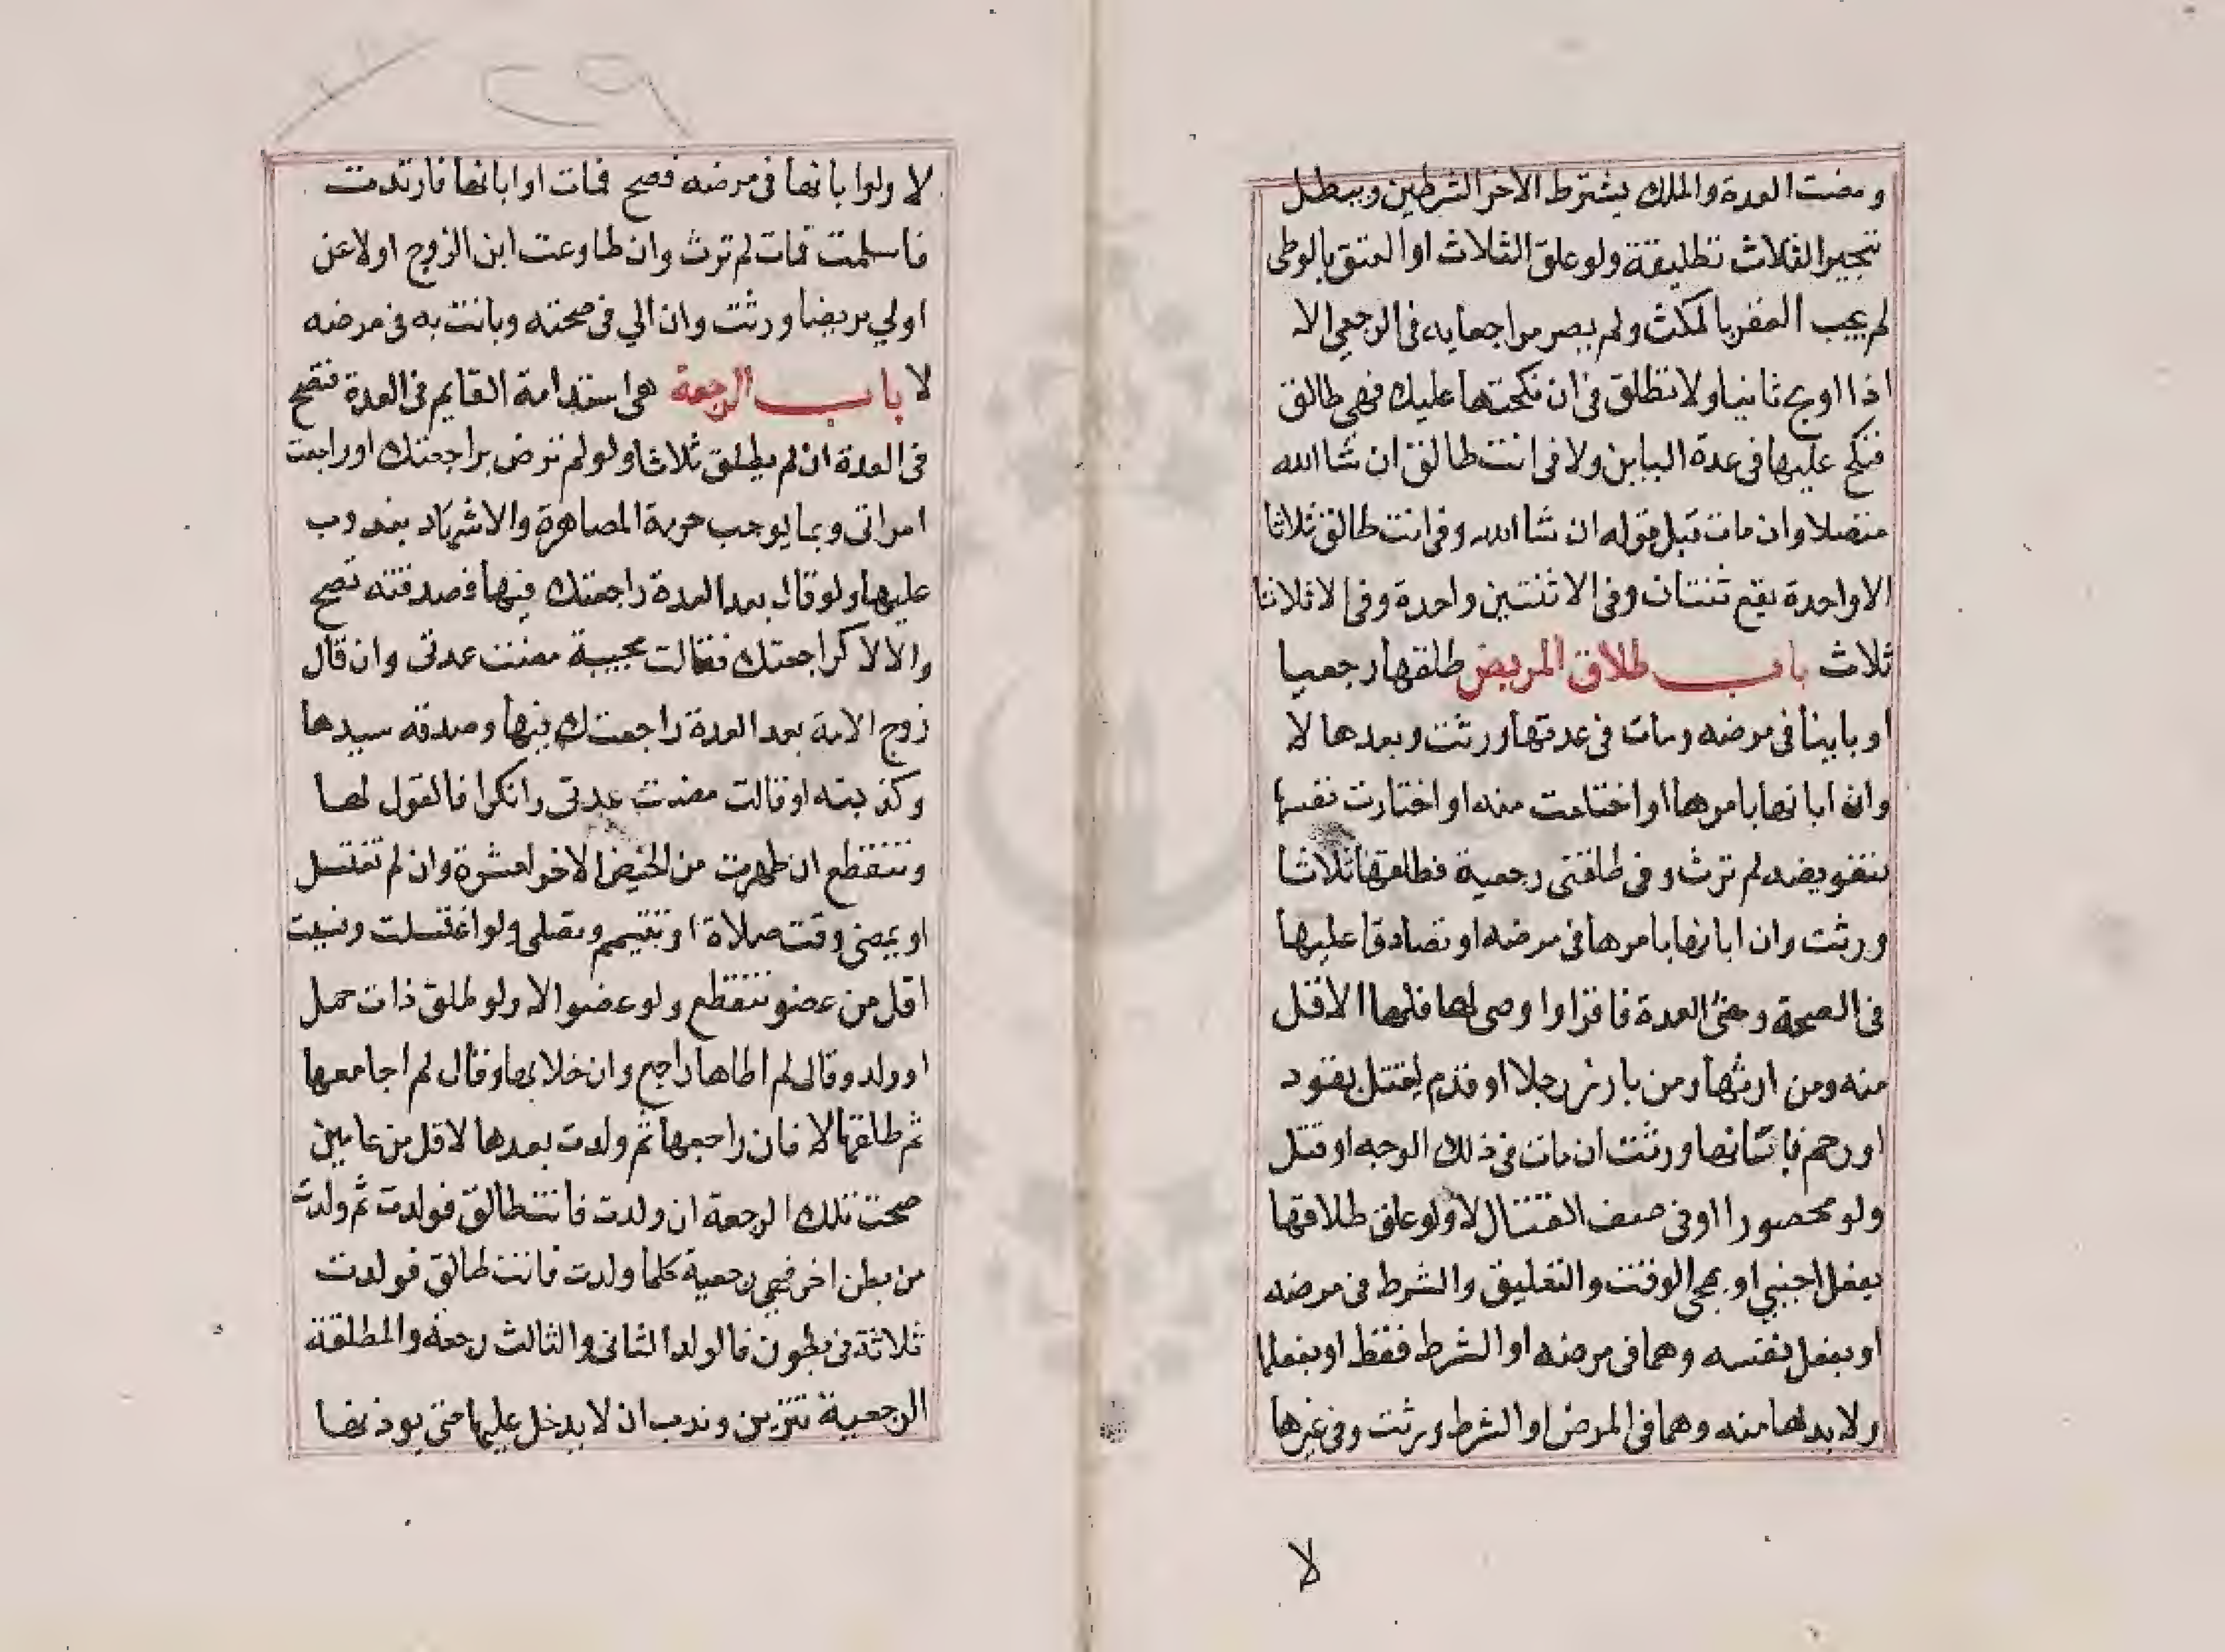 ومضت العدة والملك يشترط لاخر الشرطين ويبطل
تنجيز الثلاث تطليقة ولو علق الثلاث او العتق بالوطى
لم يجب العقر بالمكث ولم يصر مراجعا به فى الرجعي الا
اذا اولج ثانيا ولا تطلق فى ان نكحتها عليك فهي طالق
فنكح عليها فى عدة الباين ولا فى انت طالق ان شا الله
متصلا وان ماتت قبل قوله ان شا الله وفى انت طالق ثلاثا
الا واحدة يقع ثنتان وفى الا ثنتين واحدة وفى الا ثلاثا
ثلاث باب طلاق المريض طلقها رجعيا
او باينا فى مرضه ومات فى عدتها ورثت وبعدها لا
وان ابانها بامرها او اختلعت منه او اختارت نفسها
بتفويضه لم ترث وفى طلقنى رجعية فطلقها ثلاثا
ورثت وان ابانها بامرها فى مرضه او تصادقا عليها
فى الصحة ومضى العدة فاقر او اوصى لها فلها الاقل
منه ومن ارثها ومن بارز رجلا او قدم ليقتل بقود
او رجم فابانها ورثت ان مات فى ذلك الوجه او قتل
ولو محصورا او فى صف القتال لا ولو علق طلاقها
بفعل اجنبي او بمجى الوقت والتعليق والشرط فى مرضه
او بفعل نفسه وهما فى مرضه او الشرط فقط او بفعلها
ولا بد لها منه وهما فى المرض او الشرط ورثت وفى غيرها
لا
لا ولو ابانها فى مرضه فصح فمات او ابانها فارتدت
فاسلمت فمات لم ترث وان طاوعت ابن الزوج او لاعن
او لي مريضا ورثت وان الي فى صحته وبانت به فى مرضه
لا باب الرجعة هى استدامة القايم فى العدة فتصح
فى العدة ان لم يطلق ثلاثا ولو لم ترض براجعتك او راجعت
امراتى وبما يوجب حرمة المصاهرة والاشهاد مندوب
عليها ولو قال بعد العدة راجعتك فيها فصدقته تصح
والا لا كراجعتك فقالت مجيبة مضت عدتى وان قال
زوج الامة بعد العدة راجعتك فيها وصدقه سيدها
وكذبته او قالت مضت عدتى وانكرا فالقول لها
وتنقطع ان طهرت من الحيض الاخر لعشرة وان لم تغتسل
او يمضى وقت صلاة او تتيمم وتصلى ولو اغتسلت ونسيت
اقل من عضو تنقطع ولو عضوا لا ولو طلق ذات حمل
او ولد وقال لم اطاها راجع وان خلا بها وقال لم اجامعها
ثم طلقها لا فان راجعها ثم ولدت بعدها لاقل من عامين
صحت تلك الرجعة ان ولدت فانت طالق فولدت ثم ولدت
من بطن اخر فهي رجعية كلما ولدت فانت طالق فولدت
ثلاثة فى بطون فالولد الثانى والثالث رجعة والمطلقة
الرجعية تتزين وندب ان لا يدخل عليها حتى يوذنها